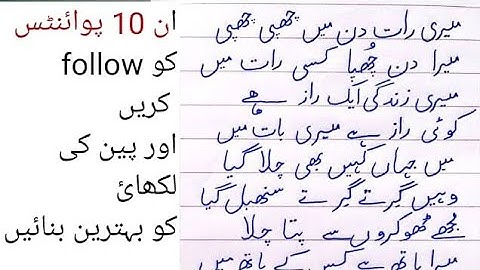 ان 10 پوائنٹس
کو follow
کریں
اور پین کی
لکھائ
کو بہترین بنائیں
میری رات دن میں چھپی چھپی
میرا دن چُھپا کسی رات میں
میری زندگی ایک راز ہے
کوئی راز ہے میری بات میں
میں جہاں کہیں بھی چلا گیا
وہیں گرتے گرتے سنبھل گیا
مجھے ٹھوکروں سے پتا چلا
میرا ہاتھ ہے کس کے ہاتھ میں